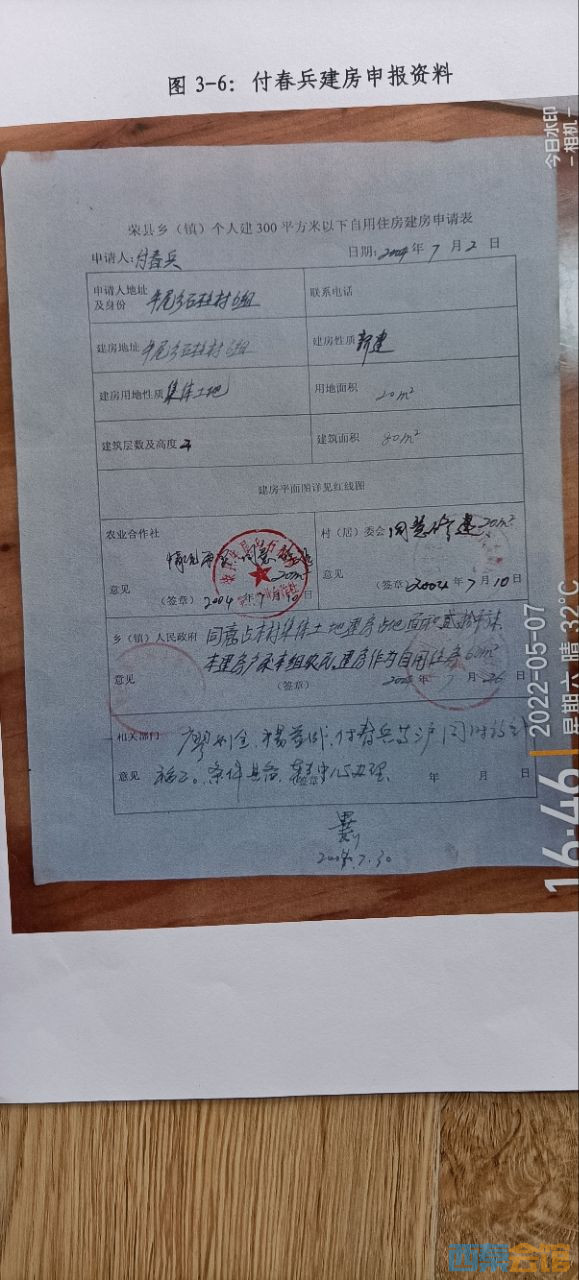 图 3-6：付春兵建房申报资料
荣县乡（镇）个人建300平方米以下自用住房建房申请表
申请人：付春兵 日期：2004年7月2日
申请人地址及身份 牟尾乡石柱村6组 联系电话
建房地址 牟尾乡石柱村6组 建房性质 新建
建房用地性质 集体土地 用地面积 20m²
建筑层数及高度 建筑面积 80m²
建房平面图详见红线图
农业合作社 村（居）委会 同意修建20m²
情况 同意 20m²
意见 意见
（签章）2004年7月10日 （签章）2004年7月10日
乡（镇）人民政府 同意占本村集体土地建房占地面积贰拾平米
本建房户系本组农民，建房作为自用住房
意见 （签章） 7月26日
相关部门 付春兵 户
意见 条件具备 办理 年 月 日
7.30
今日水印
-相机-
16:46
2022-05-07
星期六 晴 32°C
西秦会馆